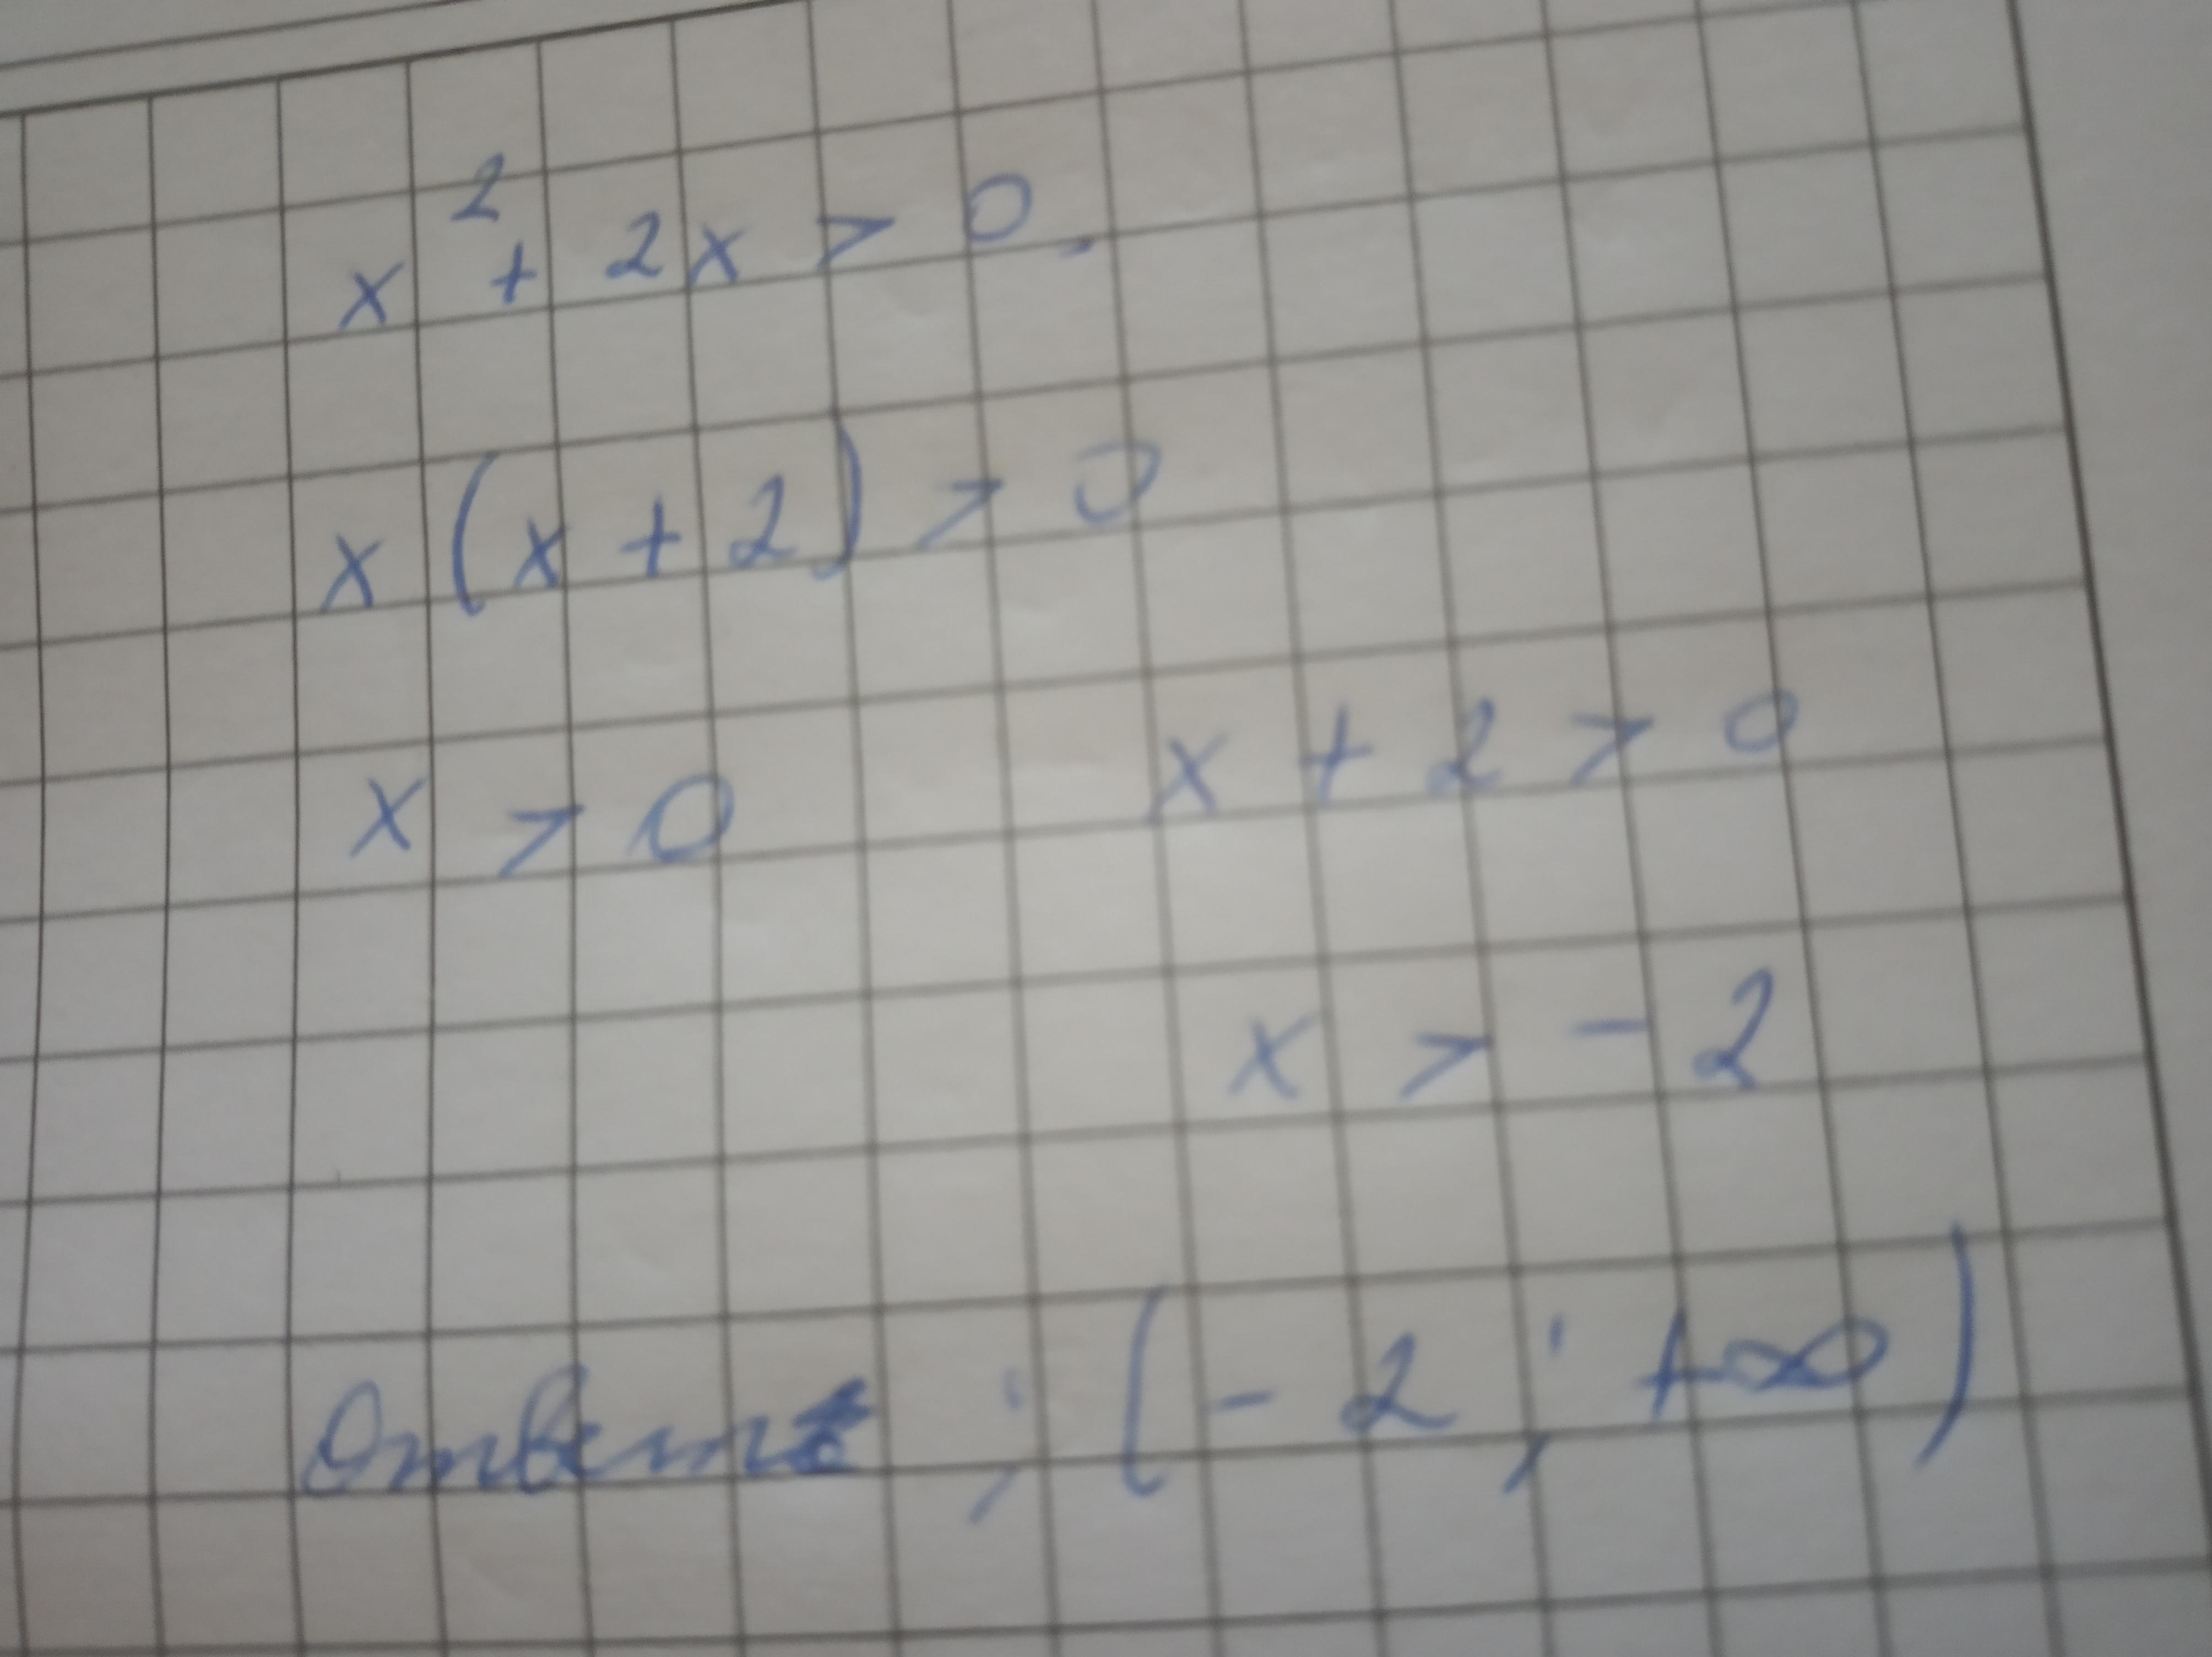 x² + 2x > 0.
x (x + 2) > 0
x > 0 x + 2 > 0
x > - 2
Ответ : (- 2 ; +∞)